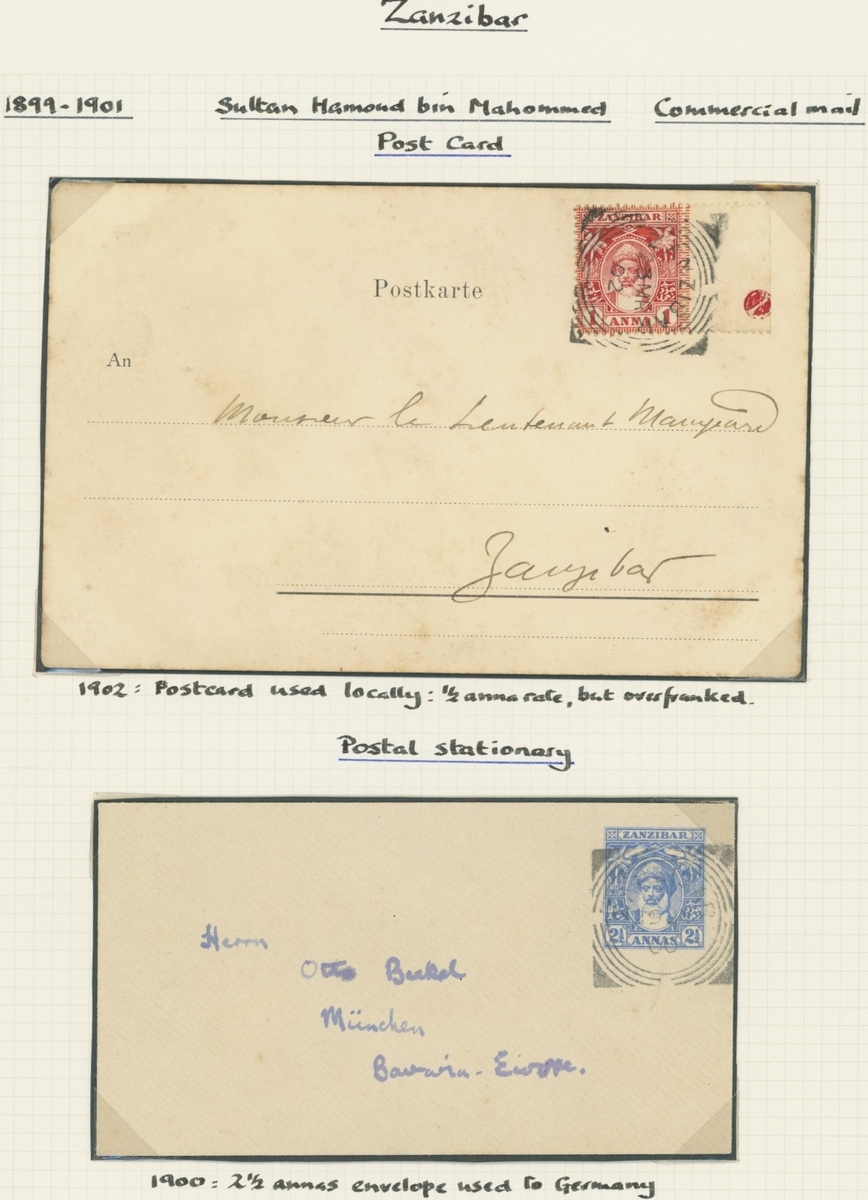 Zanzibar
1899-1901 Sultan Hamoud bin Mahommed Commercial mail
Post Card
ZANZIBAR
3 MR
02
1 ANNA 1
Postkarte
An
Monsieur le Lieutenant
Zanzibar
1902: Postcard used locally: ½ anna rate, but overfranked.
Postal stationary
ZANZIBAR
2½ ANNAS 2½
00
Herrn
Otto
München
Bavaria - Europe.
1900: 2½ annas envelope used to Germany